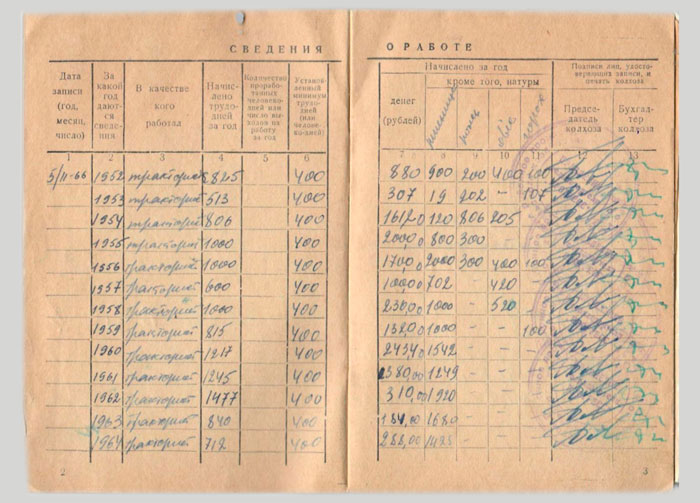 СВЕДЕНИЯ О РАБОТЕ
Дата записи (год, месяц, число)
За какой год даются сведения.
В качестве кого работал
Начислено трудодней за год
Количество проработанных человеко-дней или число выходов на работу за год
Установленный минимум трудодней (или человеко-дней)
Начислено за год
денег (рублей)
кроме того, натуры
пшеницы
овёс
Подписи лиц, удостоверяющих записи, и печать колхоза
Председатель колхоза
Бухгалтер колхоза
2 3 4 5 6 7 8 9 10 11 12 13
5/II-66 1952 тракторист 825 400 880 900 200 400 100
1953 тракторист 513 400 307 19 202 - 107
1954 тракторист 806 400 1612,0 120 806 205
1955 тракторист 1000 400 2000,0 800 300
1956 тракторист 1000 400 1700,0 2000 300 400 100
1957 тракторист 600 400 1000,0 702 - 420
1958 тракторист 1000 400 2300,0 1000 - 520 -
1959 тракторист 815 400 1320,0 1000 - - 100
1960 тракторист 1217 400 2434,0 1542 - - -
1961 тракторист 1245 400 380,00 1249 - - -
1962 тракторист 1477 400 310,00 1920 - - -
1963 тракторист 840 400 184,00 1680 - - -
1964 тракторист 712 400 288,00 - - -
2
3